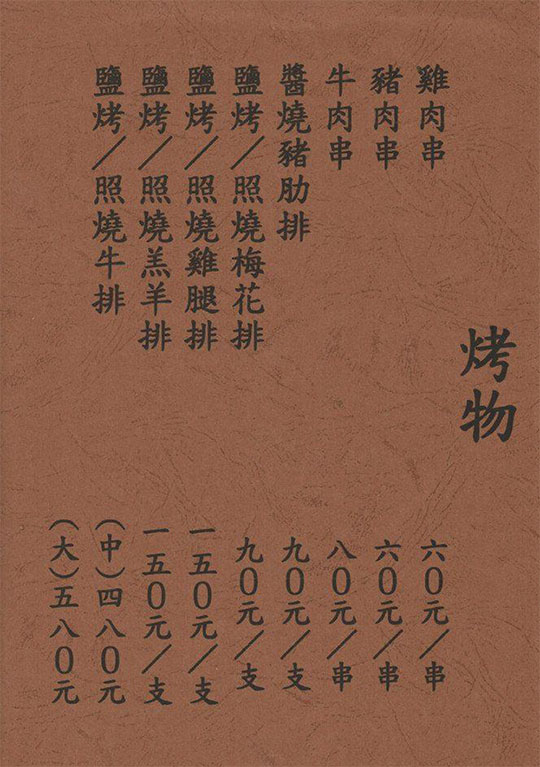 烤物
雞肉串 六０元／串
豬肉串 六０元／串
牛肉串 八０元／串
醬燒豬肋排 九０元／支
鹽烤／照燒梅花排 九０元／支
鹽烤／照燒雞腿排 一五０元／支
鹽烤／照燒羔羊排 一五０元／支
鹽烤／照燒牛排 （中）四八０元
（大）五八０元